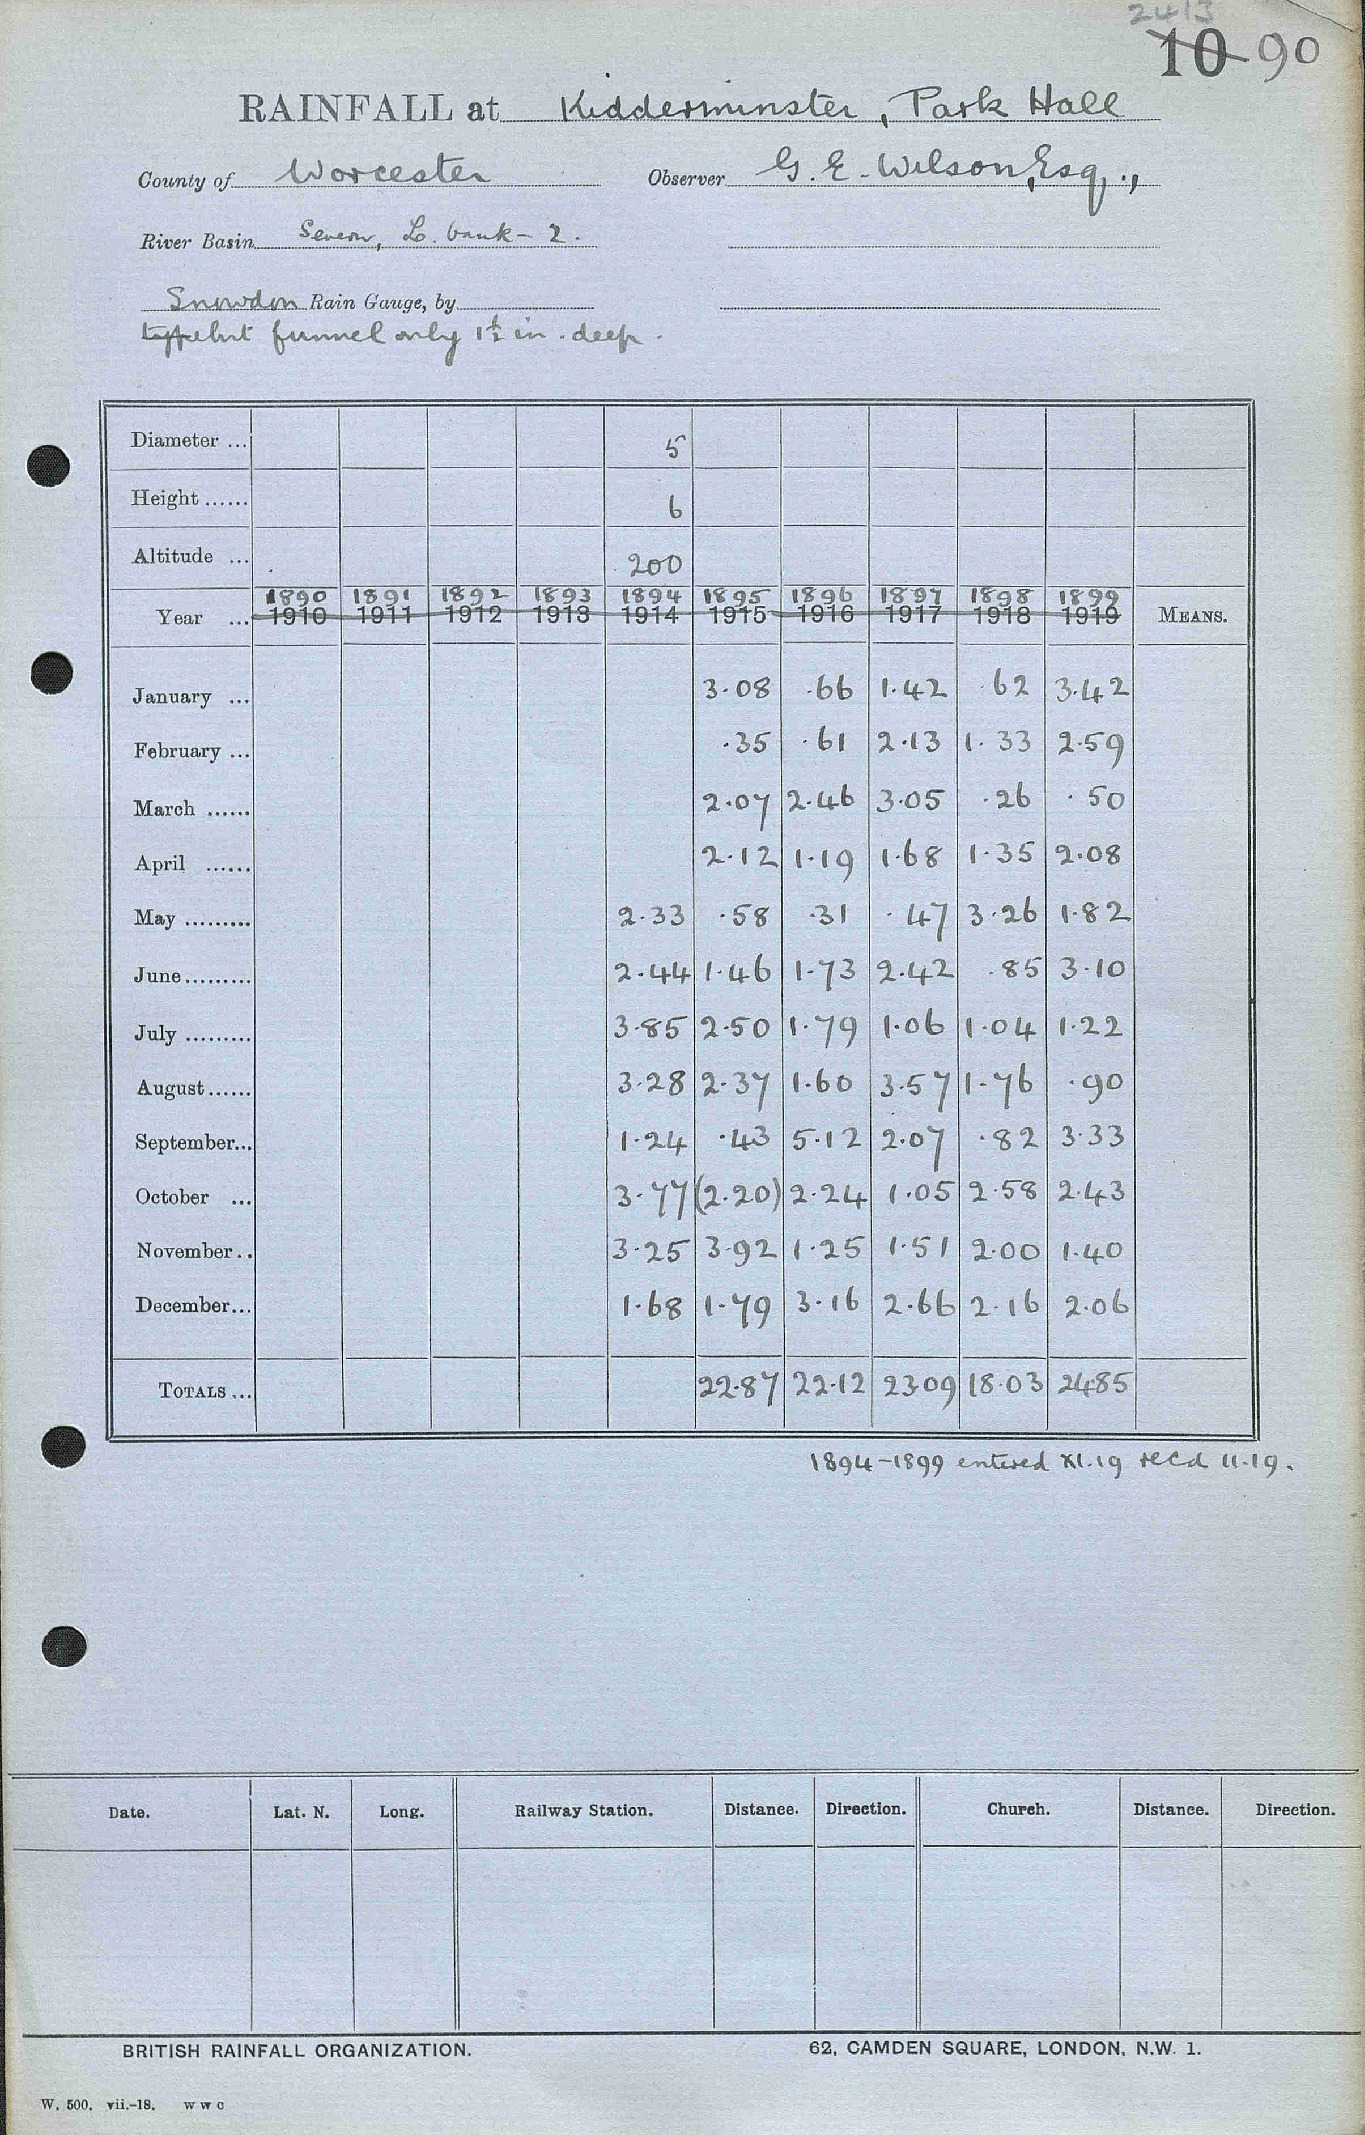 2413
10 90
RAINFALL at Kidderminster, Park Hall
County of Worcester Observer G. E. Wilson, Esq.,
River Basin Severn, L. bank - 2.
Snowdon Rain Gauge, by
type but funnel only 1½ in. deep.
Diameter ... 5
Height ...... 6
Altitude ... 200
1890 1891 1892 1893 1894 1895 1896 1897 1898 1899
Year ... 1910 1911 1912 1913 1914 1915 1916 1917 1918 1919 MEANS.
January ... 3.08 .66 1.42 .62 3.42
February ... .35 .61 2.13 1.33 2.59
March ...... 2.07 2.46 3.05 .26 .50
April ...... 2.12 1.19 1.68 1.35 2.08
May ......... 2.33 .58 .31 .47 3.26 1.82
June......... 2.44 1.46 1.73 2.42 .85 3.10
July ......... 3.85 2.50 1.79 1.06 1.04 1.22
August...... 3.28 2.37 1.60 3.57 1.76 .90
September... 1.24 .43 5.12 2.07 .82 3.33
October ... 3.77 (2.20) 2.24 1.05 2.58 2.43
November.. 3.25 3.92 1.25 1.51 2.00 1.40
December... 1.68 1.79 3.16 2.66 2.16 2.06
TOTALS ... 22.87 22.12 23.09 18.03 24.85
1894-1899 entered XI.19 recd 11.19.
Date. Lat. N. Long. Railway Station. Distance. Direction. Church. Distance. Direction.
BRITISH RAINFALL ORGANIZATION. 62, CAMDEN SQUARE, LONDON, N.W. 1.
W. 500. vii.-18. w w c